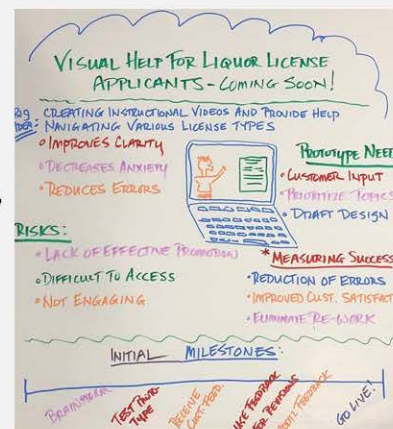 VISUAL HELP FOR LIQUOR LICENSE
APPLICANTS - COMING SOON!
CREATING INSTRUCTIONAL VIDEOS AND PROVIDE HELP
NAVIGATING VARIOUS LICENSE TYPES
• IMPROVES CLARITY
• DECREASES ANXIETY
• REDUCES ERRORS
PROTOTYPE NEED
• CUSTOMER INPUT
• PRIORITIZE TOPICS
• DRAFT DESIGN
RISKS:
• LACK OF EFFECTIVE PROMOTION
• DIFFICULT TO ACCESS
• NOT ENGAGING
* MEASURING SUCCESS
• REDUCTION OF ERRORS
• IMPROVED CUST. SATISFACT
• ELIMINATE RE-WORK
INITIAL MILESTONES:
BRAINSTORM
TEST PROTO-
TYPE
RECEIVE
CUST. FEED.
USE FEEDBACK
FOR REVISIONS
FEEDBACK
GO LIVE!